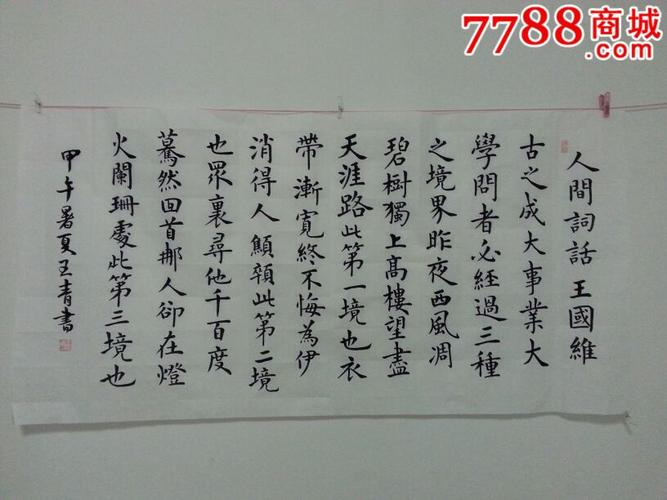 7788商城
.com
人間詞話 王國維
古之成大事業大
學問者必經過三種
之境界昨夜西風凋
碧樹獨上高樓望盡
天涯路此第一境也衣
帶漸寬終不悔為伊
消得人顦顇此第二境
也眾裏尋他千百度
驀然回首那人卻在燈
火闌珊處此第三境也
甲午暑夏王青書